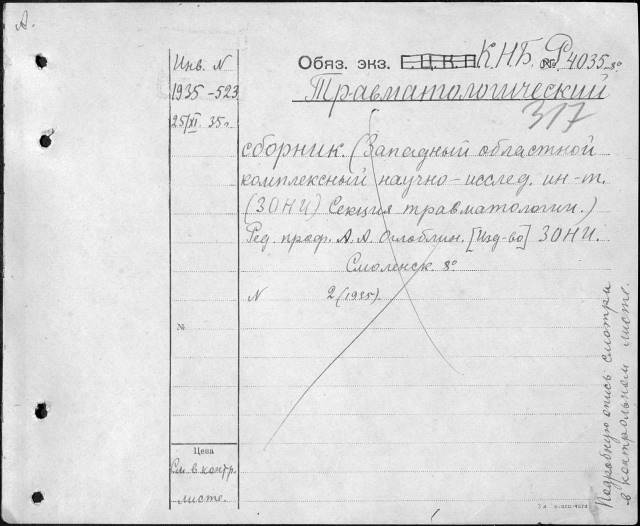 А.
Инв. N
1935-523
25/XI 35 г.
Обяз. экз. Г.Ц.К.П КНБ. № Р4035-8°
Травматологический
317
сборник. (Западный областной
комплексный научно-исслед. ин-т.
(ЗОНИ) Секция травматологии.)
Ред. проф. А. А. Оглоблин. [Изд-во] ЗОНИ.
Смоленск. 8°
N 2 (1935).
№
Цена
См. в контр.
листе.
Подробную опись смотри
в контрольном листе.